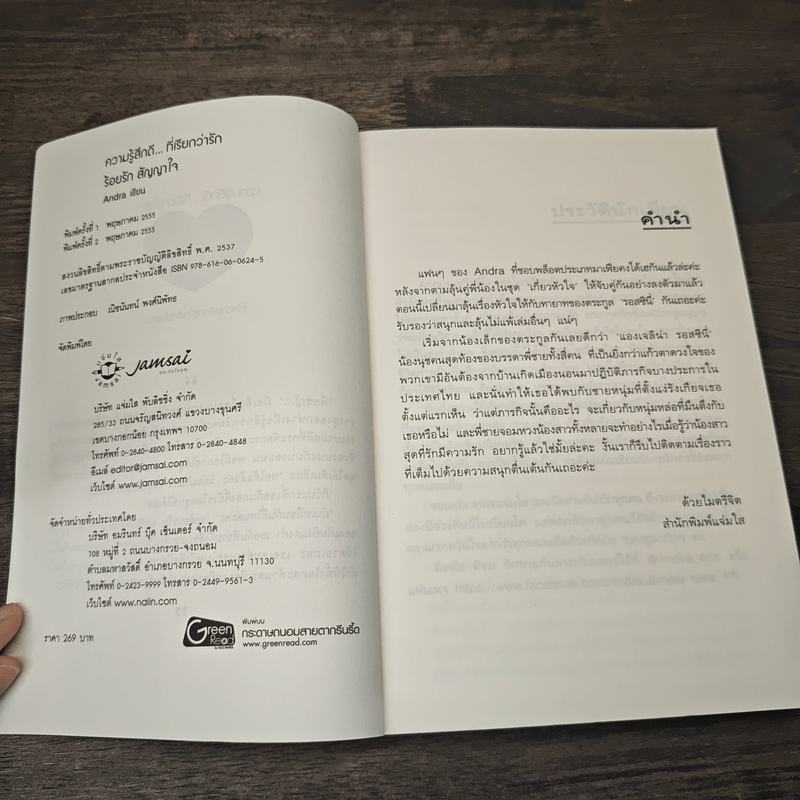 ความรู้สึกดี... ที่เรียกว่ารัก
ร้อยรัก สัญญาใจ
Andra เขียน
พิมพ์ครั้งที่ 1 พฤษภาคม 2555
พิมพ์ครั้งที่ 2 พฤษภาคม 2555
สงวนลิขสิทธิ์ตามพระราชบัญญัติลิขสิทธิ์ พ.ศ. 2537
เลขมาตรฐานสากลประจำหนังสือ ISBN 978-616-06-0624-5
ภาพประกอบ ณิชนันทน์ พงศ์นิพัทธ
จัดพิมพ์โดย
jamsai
บริษัท แจ่มใส พับลิชชิ่ง จำกัด
285/33 ถนนจรัญสนิทวงศ์ แขวงบางขุนศรี
เขตบางกอกน้อย กรุงเทพฯ 10700
โทรศัพท์ 0-2840-4800 โทรสาร 0-2840-4848
อีเมล์ editor@jamsai.com
เว็บไซต์ www.jamsai.com
จัดจำหน่ายทั่วประเทศโดย
บริษัท อมรินทร์ บุ๊ค เซ็นเตอร์ จำกัด
108 หมู่ที่ 2 ถนนบางกรวย-จงถนอม
ตำบลมหาสวัสดิ์ อำเภอบางกรวย จ.นนทบุรี 11130
โทรศัพท์ 0-2423-9999 โทรสาร 0-2449-9561-3
เว็บไซต์ www.naiin.com
ราคา 269 บาท
Green Read
พิมพ์บน
กระดาษถนอมสายตากรีนรี้ด
www.greenread.com
คำนำ
แฟนๆ ของ Andra ที่ชอบพล็อตประเภทมาเฟียคงได้เฮกันแล้วล่ะค่ะ
หลังจากตามลุ้นคู่พี่น้องในชุด 'เกี่ยวหัวใจ' ให้จับคู่กันอย่างลงตัวมาแล้ว
ตอนนี้เปลี่ยนมาลุ้นเรื่องหัวใจให้กับทายาทของตระกูล 'รอสซินี่' กันเถอะค่ะ
รับรองว่าสนุกและลุ้นไม่แพ้เล่มอื่นๆ แน่ๆ
เริ่มจากน้องเล็กของตระกูลกันเลยดีกว่า 'แองเจลิน่า รอสซินี่'
น้องนุชคนสุดท้องของบรรดาพี่ชายทั้งสี่คน ที่เป็นยิ่งกว่าแก้วตาดวงใจของ
พวกเขามีอันต้องจากบ้านเกิดเมืองนอนมาปฏิบัติภารกิจบางประการใน
ประเทศไทย และนั่นทำให้เธอได้พบกับชายหนุ่มที่ตั้งแง่รังเกียจเธอ
ตั้งแต่แรกเห็น ว่าแต่ภารกิจนั้นคืออะไร จะเกี่ยวกับหนุ่มหล่อที่มึนตึงกับ
เธอหรือไม่ และพี่ชายจอมหวงน้องสาวทั้งหลายจะทำอย่างไรเมื่อรู้ว่าน้องสาว
สุดที่รักมีความรัก อยากรู้แล้วใช่มั้ยล่ะคะ งั้นเราก็รีบไปติดตามเรื่องราว
ที่เต็มไปด้วยความสนุกตื่นเต้นกันเถอะค่ะ
ด้วยไมตรีจิต
สำนักพิมพ์แจ่มใส